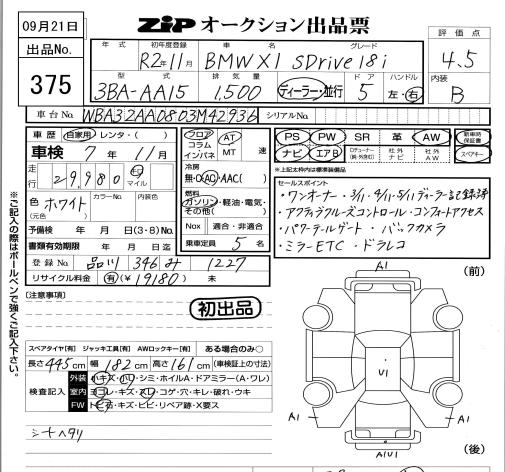 09月21日
ZiP オークション出品票
出品No.
375
年式 初年度登録 車名 グレード
R2年11月 BMW X1 SDrive 18i
型式 排気量 ドア ハンドル
3BA-AA15 1,500 ディーラー・並行 5 左・右
評価点
4.5
内装
B
車台No. WBA32AA0803M42936 シリアルNo.
車歴 自家用 レンタ・( )
車検 7年11月
走行 29,980 km マイル
色 ホワイト カラーNo. 内装色
(元色)
予備検 年 月 日(3・8)No.
書類有効期限 年 月 日迄
登録No. 品川 346 み 1227
リサイクル料金 有(¥19180) 未
フロア コラム インパネ AT MT 速
冷房
無・AC・AAC( )
燃料
ガソリン・軽油・電気・
その他( )
Nox 適合・非適合
乗車定員 5名
PS PW SR 革 AW 新車時保証書
ナビ エアB 社外ナビ 社外AW スペアキー
*上記太枠内は標準装備品
セールスポイント
・ワンオーナー・3/11.4/11.5/11ディーラー記録簿
・アクティブクルーズコントロール・コンフォートアクセス
・パワーテールゲート・バックカメラ
・ミラーETC・ドラレコ
※ご記入の際はボールペンで強くご記入下さい。
[注意事項]
初出品
スペアタイヤ[有] ジャッキ工具[有] AWロックキー[有] ある場合のみ○
長さ445cm 幅182cm 高さ161cm (車検証上の寸法)
検査記入
外装 小キズ・凹・シミ・ホイルA・ドアミラー(A・ワレ)
室内 ヨゴレ・キズ・スレ・コゲ・穴・キレ・破れ・ウキ
FW トビ石・キズ・ヒビ・リペア跡・X要ス
シートヘタリ
(前)
A1
U1
A1
A1
A1U1
(後)